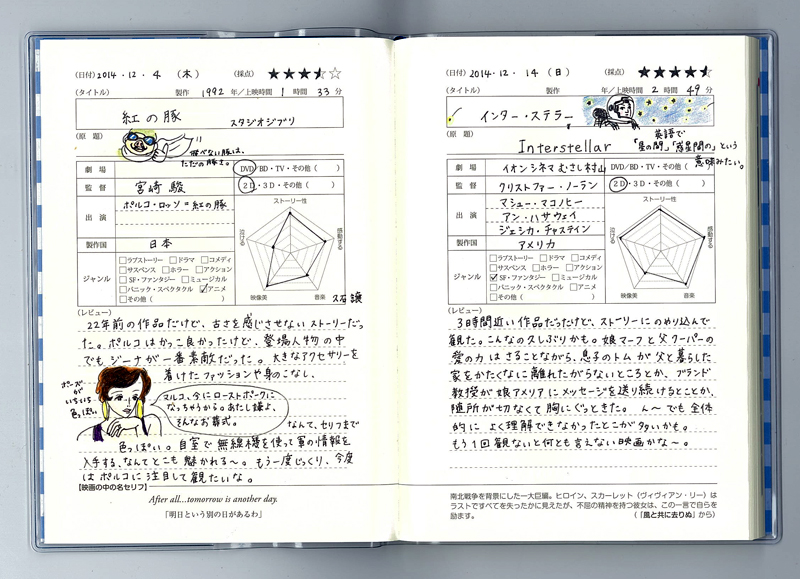 (日付) 2014・12・4 (木) (採点) ★★★
(タイトル) 製作 1992 年/上映時間 1 時間 33 分
紅の豚 スタジオジブリ
(原 題)
飛べない豚は、
ただの豚さ。
劇 場 DVD/BD・TV・その他( )
監 督 宮崎 駿 2D・3D・その他( )
出 演 ポルコ・ロッソ=紅の豚
製作国 日本
ジャンル
□ラブストーリー □ドラマ □コメディ
□サスペンス □ホラー □アクション
□SF・ファンタジー □ミュージカル
□パニック・スペクタクル ☑アニメ
□その他( )
ストーリー性
感動する
音楽 久石 譲
映像美
泣ける
(レビュー)
22年前の作品だけど、古さを感じさせないストーリーだっ
た。ポルコはかっこ良かったけど、登場人物の中
でもジーナが一番素敵だった。大きなアクセサリーを
着けたファッションや身のこなし、
ポーズ
が
いちいち
色っぽい
マルコ、今にローストポークに
なっちゃうから。あたし嫌よ、
そんなお葬式。
なんて、セリフまで
色っぽい。自室で無線機を使って軍の情報を
入手する、なんてとこも魅かれる〜。もう一度じっくり、今度
はポルコに注目して観たいな。
【映画の中の名セリフ】
After all...tomorrow is another day.
「明日という別の日があるわ」
(日付) 2014・12・14 (日) (採点) ★★★★
(タイトル) 製作 年/上映時間 2 時間 49 分
インター・ステラー
(原 題) Interstellar
英語で
「星の間」「惑星間の」という
意味みたい。
劇 場 イオンシネマむさし村山 DVD/BD・TV・その他( )
監 督 クリストファー・ノーラン 2D・3D・その他( )
出 演 マシュー・マコノヒー
アン・ハサウェイ
ジェシカ・チャステイン
製作国 アメリカ
ジャンル
□ラブストーリー □ドラマ □コメディ
□サスペンス □ホラー □アクション
☑SF・ファンタジー □ミュージカル
□パニック・スペクタクル □アニメ
□その他( )
ストーリー性
感動する
音楽
映像美
泣ける
(レビュー)
3時間近い作品だったけど、ストーリーにのめり込んで
観た。こんなの久しぶりかも。娘マーフと父クーパーの
愛の力はさることながら、息子のトムが父と暮らした
家をかたくなに離れたがらないところとか、ブランド
教授が娘アメリアにメッセージを送り続けるとことか、
随所が切なくて胸にぐっときた。ん〜でも全体
的によく理解できなかったとこが多いかも。
もう1回観ないと何とも言えない映画かな〜。
南北戦争を背景にした一大巨編。ヒロイン、スカーレット(ヴィヴィアン・リー)は
ラストですべてを失ったかに見えたが、不屈の精神を持つ彼女は、この一言で自らを
励ます。 (「風と共に去りぬ」から)